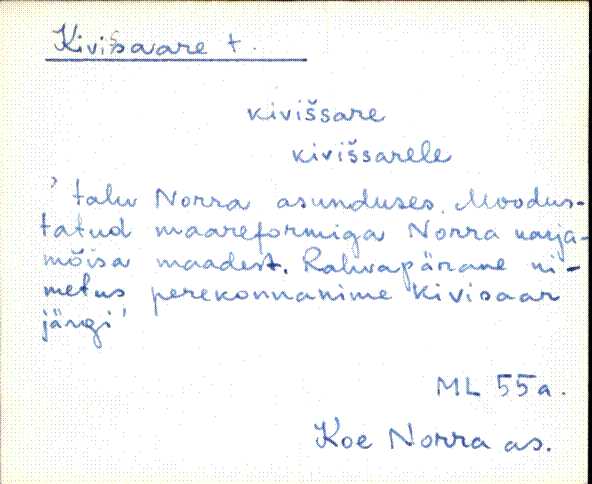 Kivisaare t.
kivišsare
kivišsarele
' talu Norra asunduses. Moodus-
tatud maareformiga Norra karja-
mõisa maadest. Rahvapärane ni-
metus perekonnanime Kivisaar
järgi'
ML 55a.
Koe Norra as.